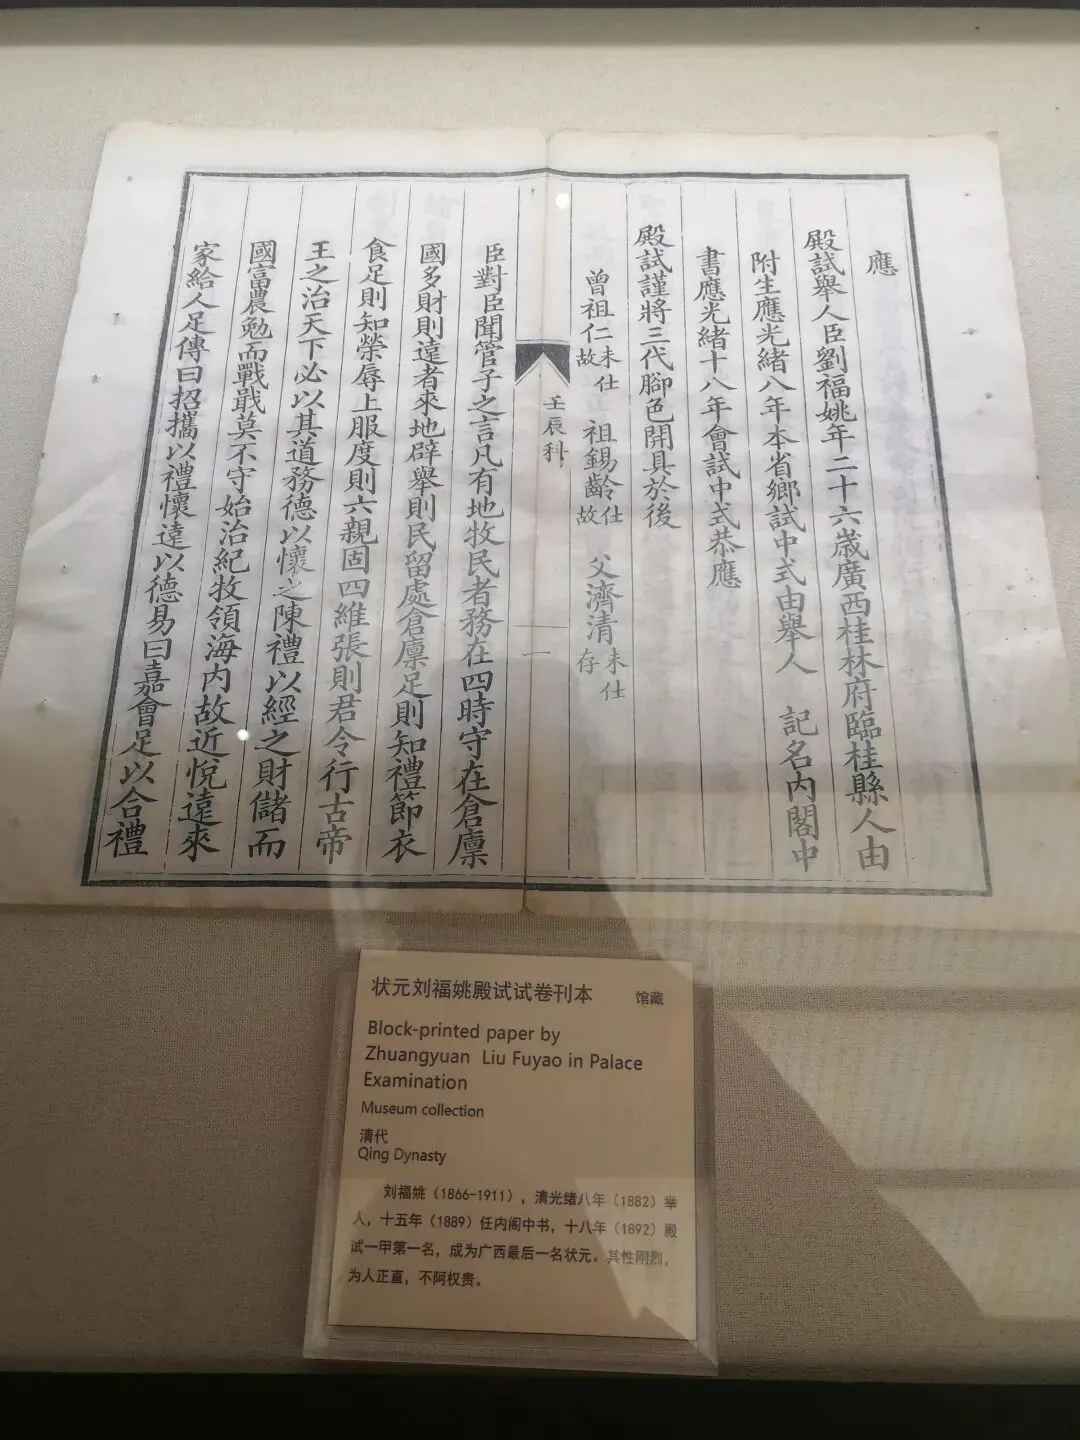 應
殿試舉人臣劉福姚年二十六歲廣西桂林府臨桂縣人由
附生應光緒八年本省鄉試中式由舉人 記名內閣中
書應光緒十八年會試中式恭應
殿試謹將三代腳色開具於後
曾祖仁未仕故 祖錫齡仕故 父濟清未仕存
壬辰科
一
臣對臣聞管子之言凡有地牧民者務在四時守在倉廩
國多財則遠者來地辟舉則民留處倉廩足則知禮節衣
食足則知榮辱上服度則六親固四維張則君令行古帝
王之治天下必以其道務德以懷之陳禮以經之財儲而
國富農勉而戰戢莫不守始治紀牧領海內故近悅遠來
家給人足傳曰招攜以禮懷遠以德易曰嘉會足以合禮
状元刘福姚殿试试卷刊本 馆藏
Block-printed paper by
Zhuangyuan Liu Fuyao in Palace
Examination
Museum collection
清代
Qing Dynasty
刘福姚（1866-1911），清光绪八年（1882）举
人，十五年（1889）任内阁中书，十八年（1892）殿
试一甲第一名，成为广西最后一名状元。其性刚烈，
为人正直，不阿权贵。